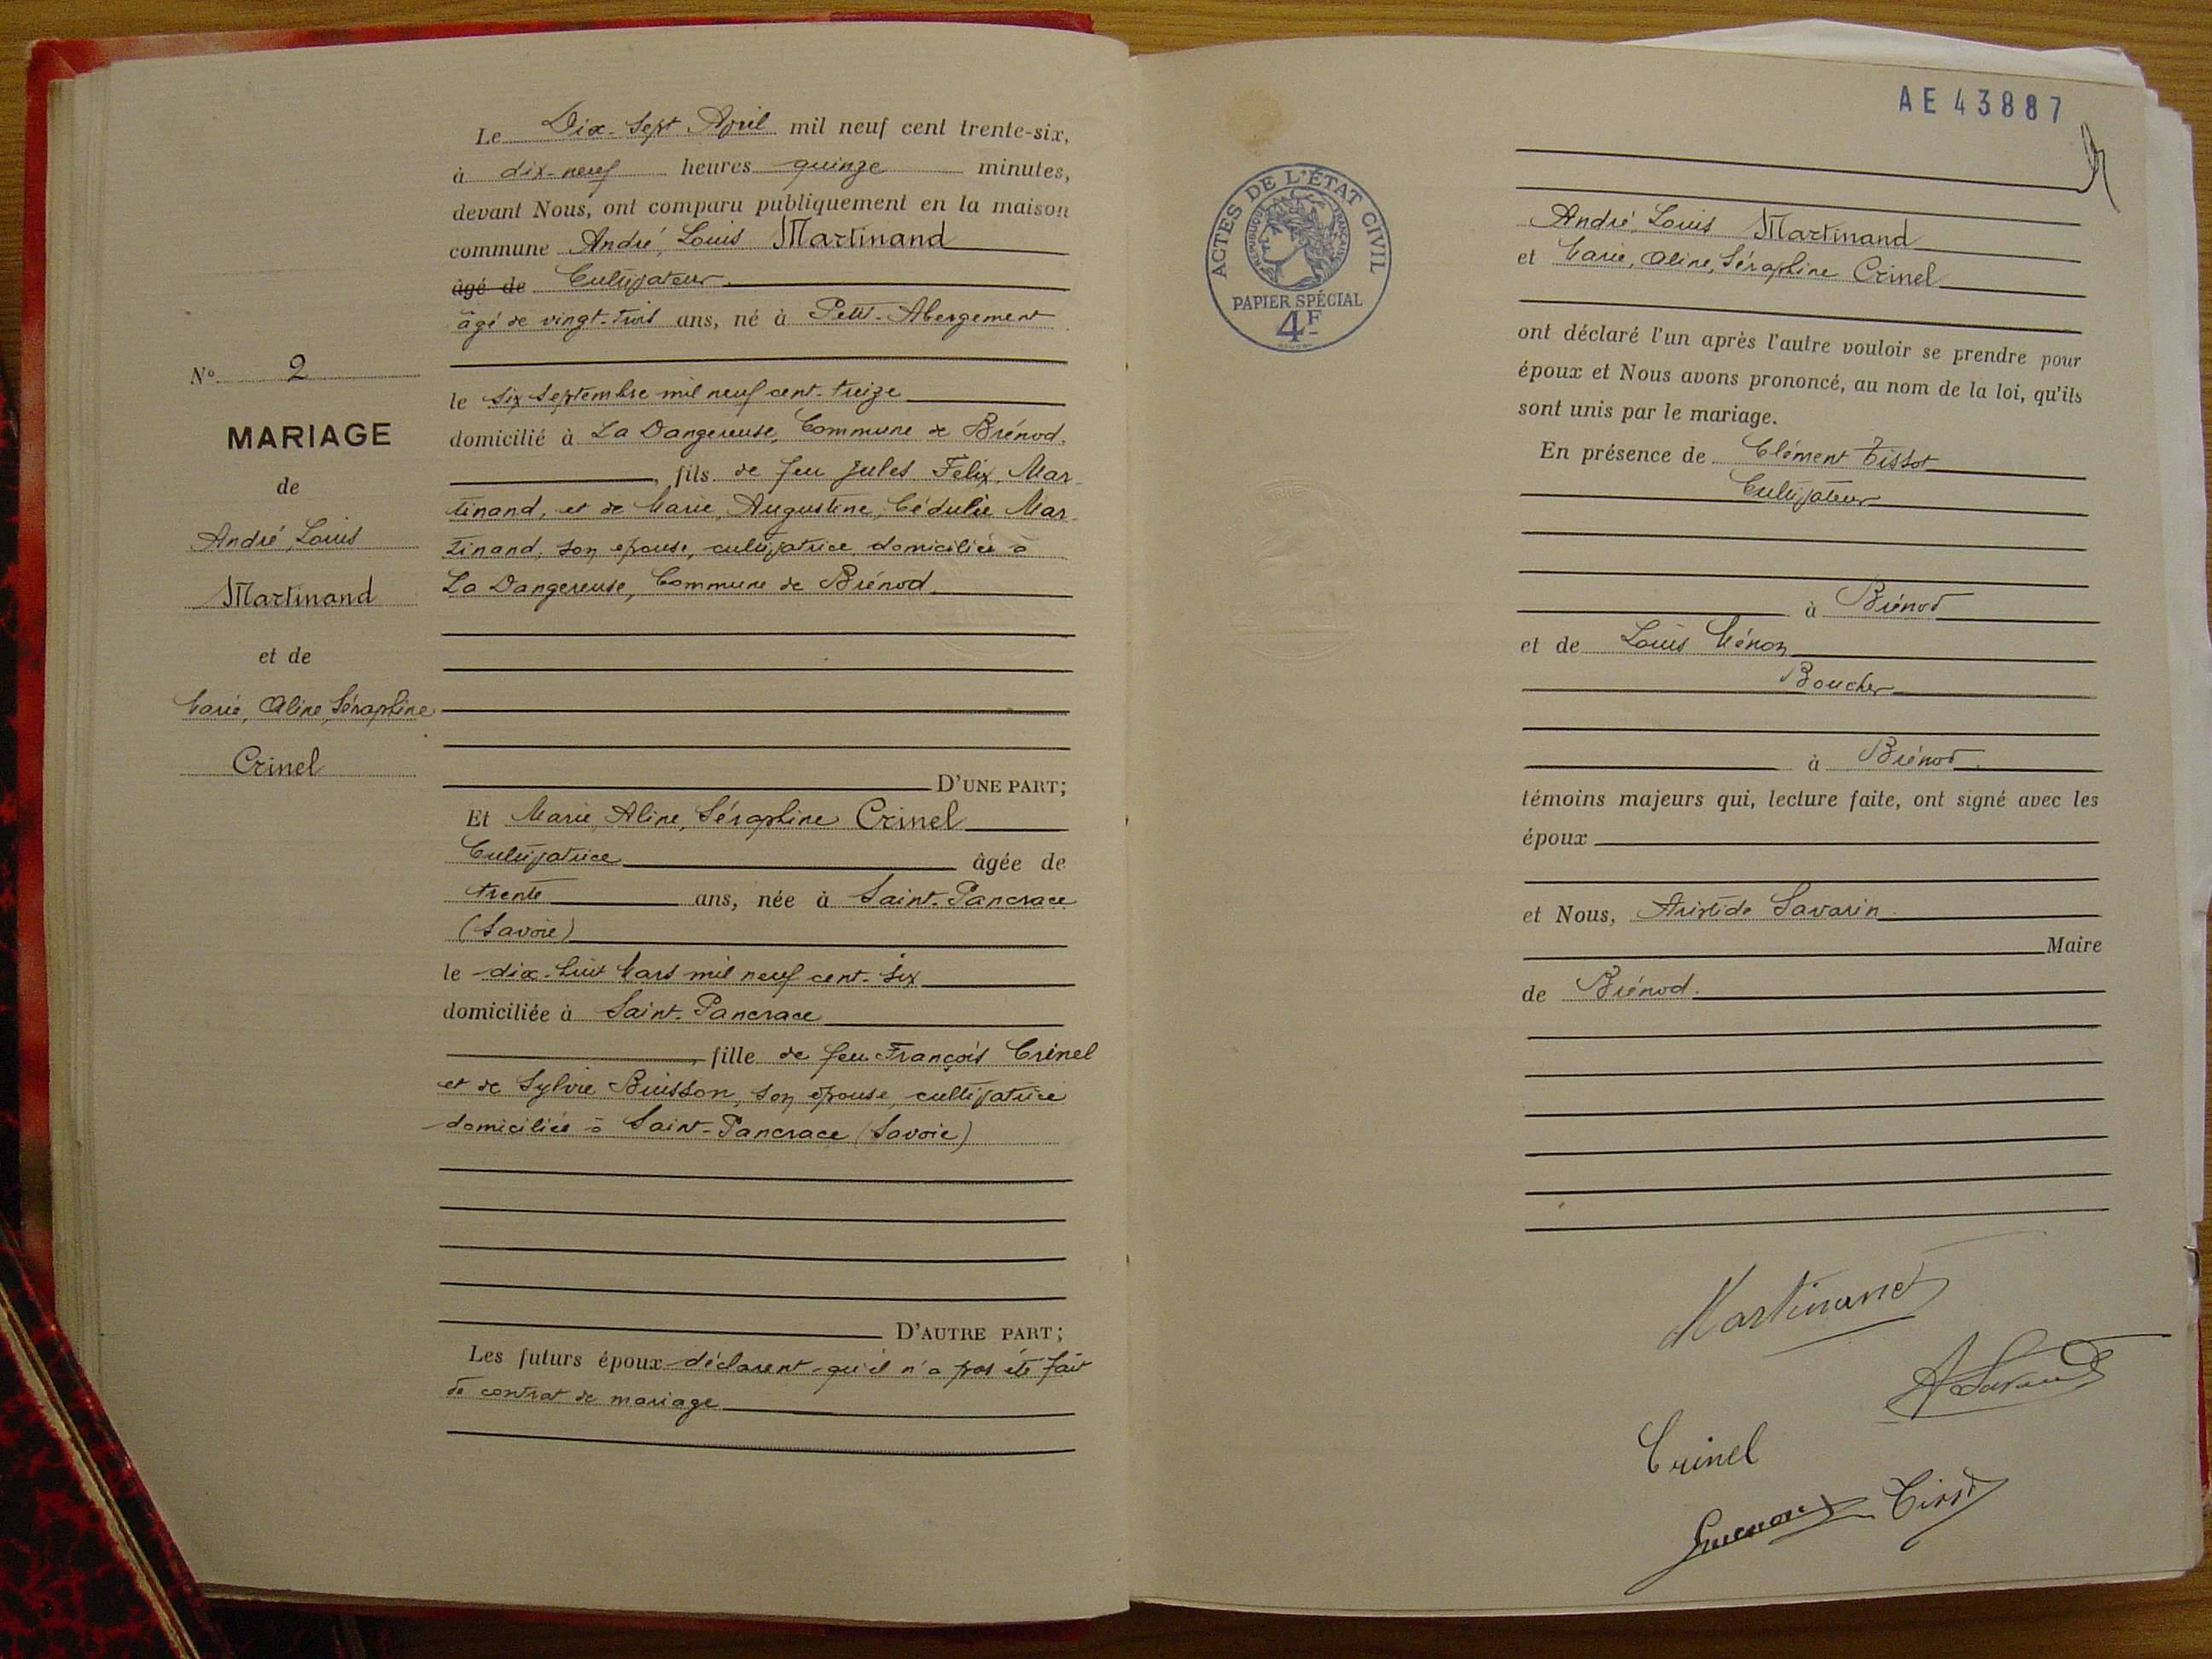 Le Dix-Sept Avril mil neuf cent trente-six,
à dix-neuf heures quinze minutes,
devant Nous, ont comparu publiquement en la maison
commune André, Louis Martinand
âgé de Cultivateur
âgé de vingt-trois ans, né à Petit-Abergement
le six Septembre mil neuf cent-treize
domicilié à La Dangereuse, Commune de Brénod.
, fils de feu Jules Felix, Mar-
tinand, et de Marie, Augustine, Cédulie Mar-
tinand, son épouse, cultivatrice domiciliée à
La Dangereuse, Commune de Brénod
D'UNE PART;
Et Marie, Aline, Séraphine Crinel
Cultivatrice âgée de
trente ans, née à Saint-Pancrace
(Savoie)
le dix-huit Mars mil neuf cent-six
domiciliée à Saint-Pancrace
, fille de feu François Crinel
et de Sylvie Buisson, son épouse, cultivatrice
domiciliée à Saint-Pancrace (Savoie)
D'AUTRE PART;
Les futurs époux déclarent qu'il n'a pas été fait
de contrat de mariage
N° 2
MARIAGE
de
André, Louis
Martinand
et de
Marie, Aline, Séraphine
Crinel
AE 43887
ACTES DE L'ÉTAT CIVIL
RÉPUBLIQUE FRANÇAISE
PAPIER SPÉCIAL
4F
André, Louis Martinand
et Marie, Aline, Séraphine Crinel
ont déclaré l'un après l'autre vouloir se prendre pour
époux et Nous avons prononcé, au nom de la loi, qu'ils
sont unis par le mariage.
En présence de Clément Tissot
Cultivateur
à Brénod
et de Louis Génon
Boucher
à Brénod.
témoins majeurs qui, lecture faite, ont signé avec les
époux
et Nous, Aristide Savarin
Maire
de Brénod.
Martinand
A Savarin
Crinel
Tissot